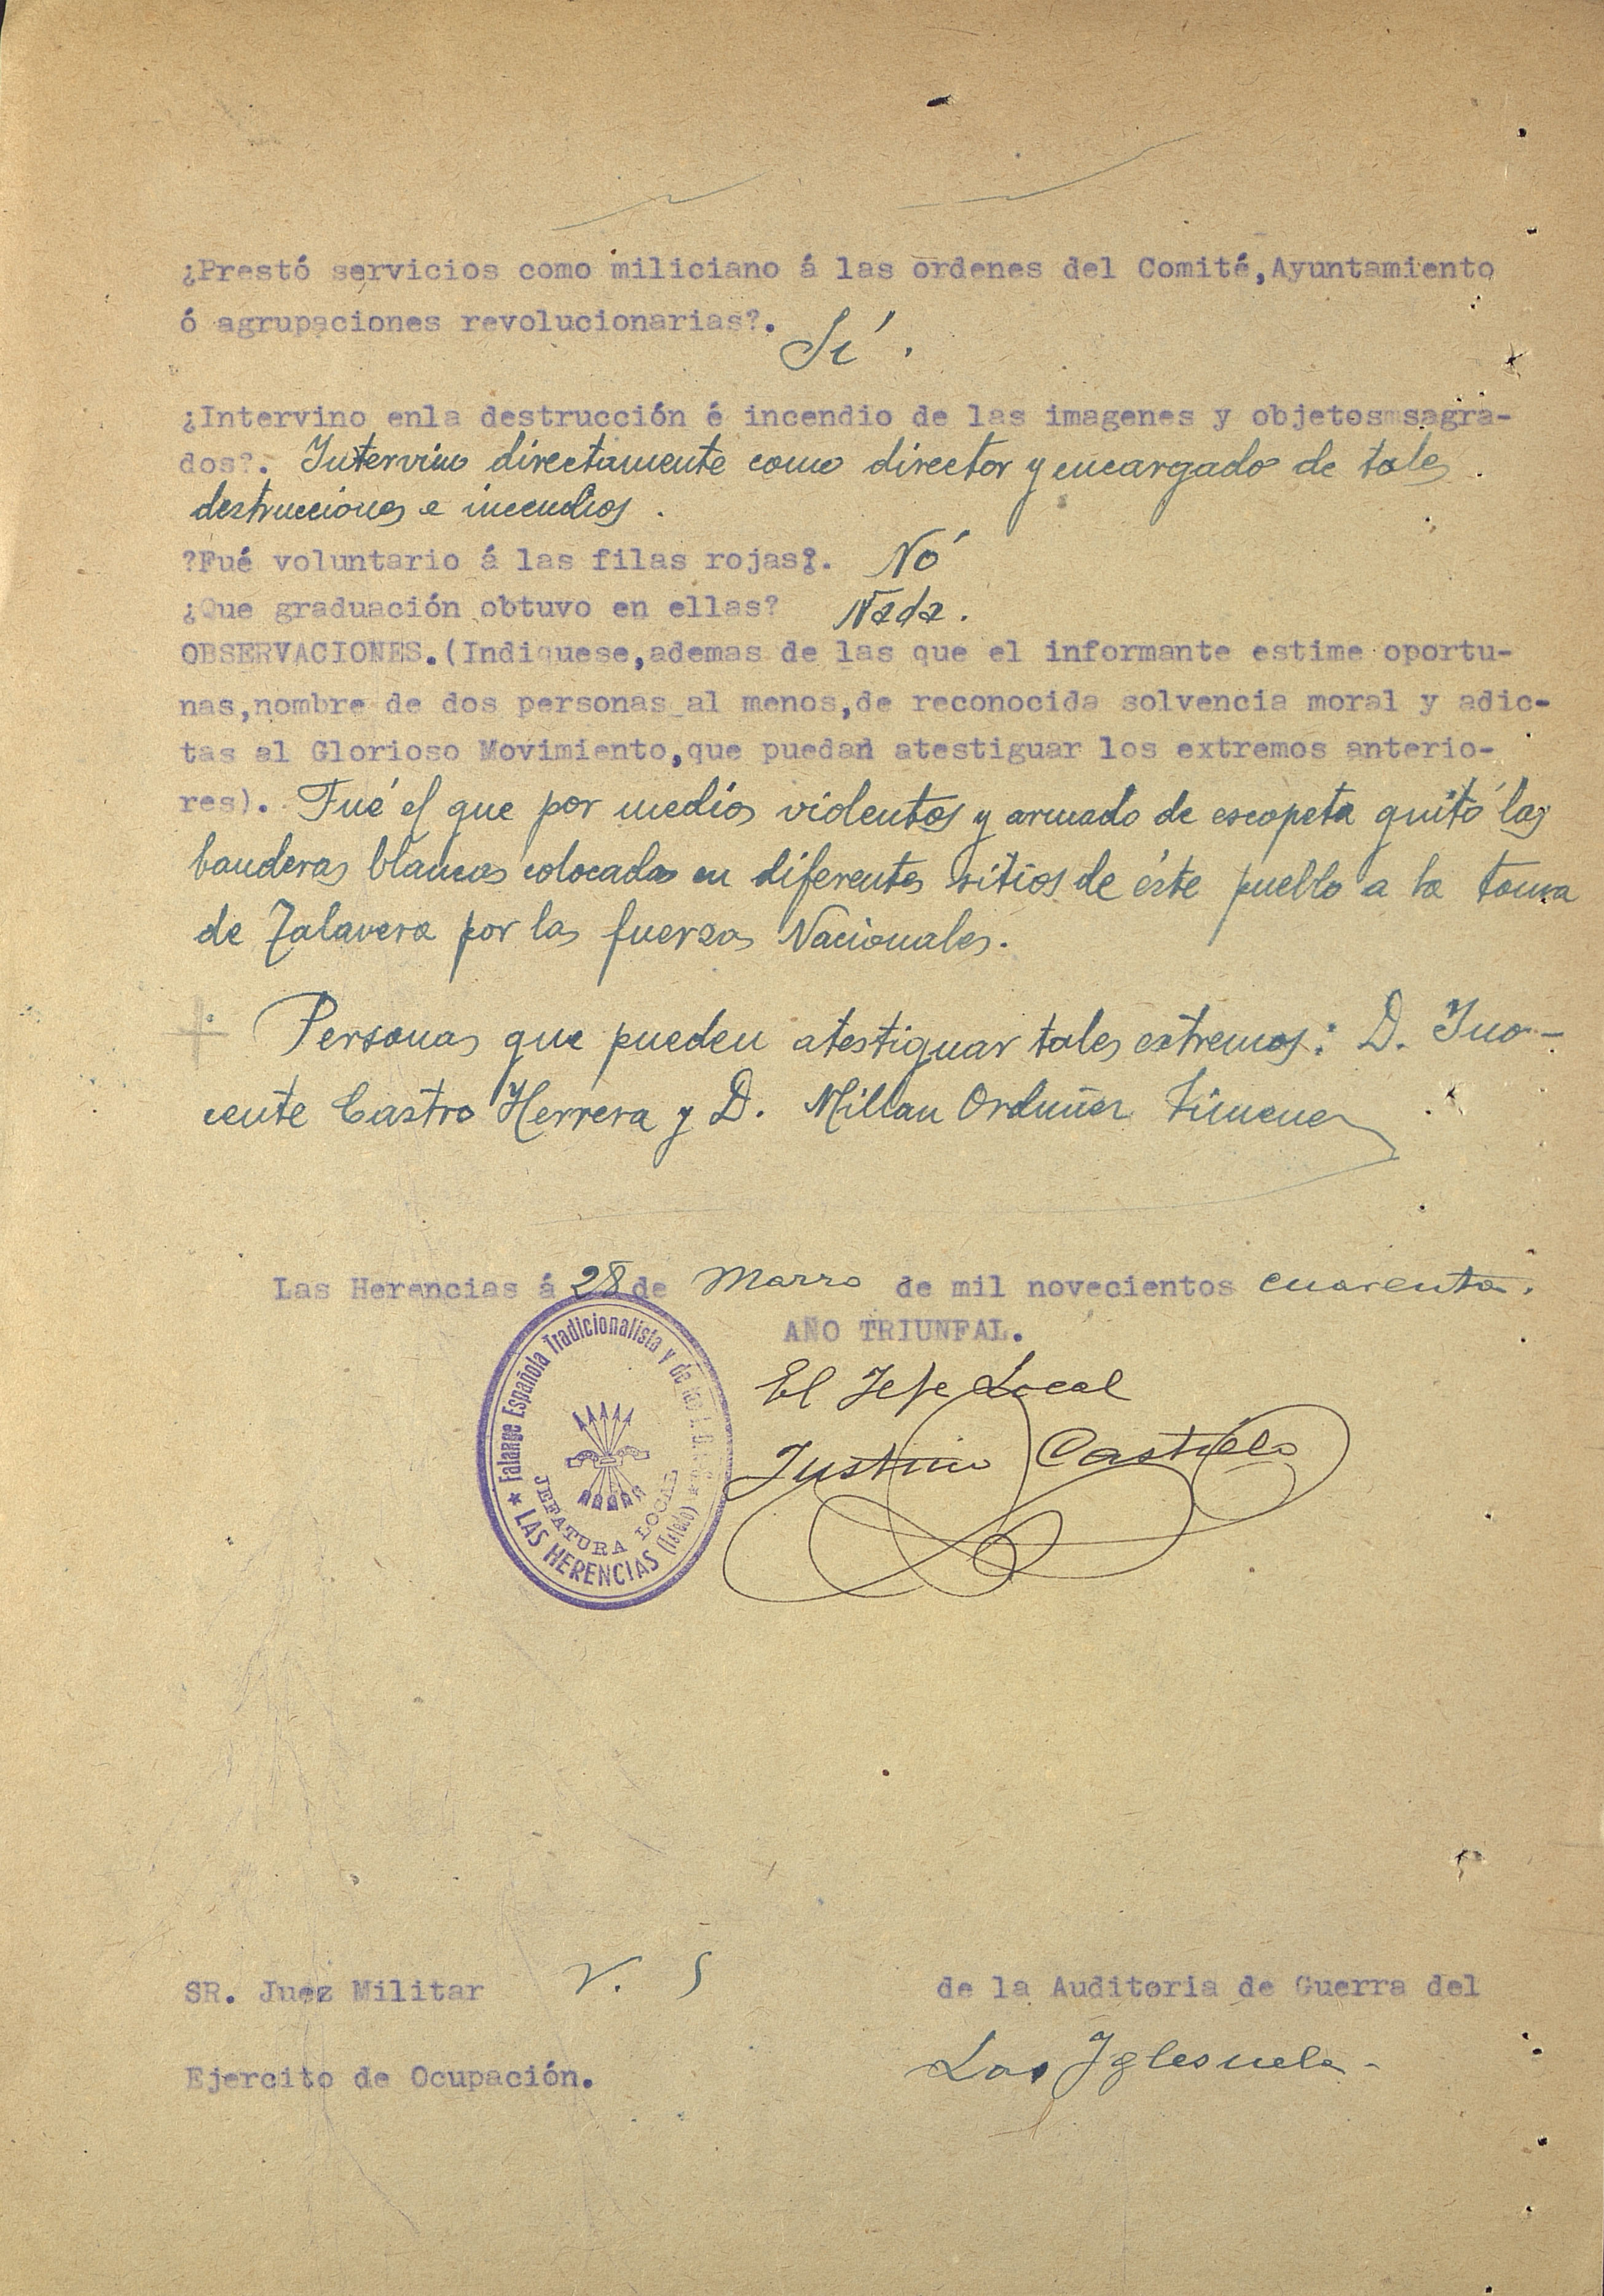 ¿Prestó servicios como miliciano á las ordenes del Comité,Ayuntamiento
ó agrupaciones revolucionarias?.
Sí.
¿Intervino enla destrucción é incendio de las imagenes y objetosmsagra-
dos?. Intervino directamente como director y encargado de tales
destrucciones e incendios.
?Fué voluntario á las filas rojas?. Nó
¿Que graduación obtuvo en ellas? Nada.
OBSERVACIONES.(Indiquese,ademas de las que el informante estime oportu-
nas,nombre de dos personas al menos,de reconocida solvencia moral y adic-
tas al Glorioso Movimiento,que puedan atestiguar los extremos anterio-
res). Fué el que por medios violentos y armado de escopeta quitó las
banderas blancas colocadas en diferentes sitios de éste pueblo a la toma
de Talavera por las fuerzas Nacionales.
Personas que pueden atestiguar tales extremos: D. Ino-
cente Castro Herrera y D. Millan Orduñez Jimenez
Las Herencias á 28 de Marzo de mil novecientos cuarenta.
AÑO TRIUNFAL.
El Jefe Local
Justino Castillo
★ Falange Española Tradicionalista y de las J.O.N.S. ★
JEFATURA LOCAL
LAS HERENCIAS (Toledo)
SR. Juez Militar V. S de la Auditoria de Guerra del
Ejercito de Ocupación. Las Iglesuela-